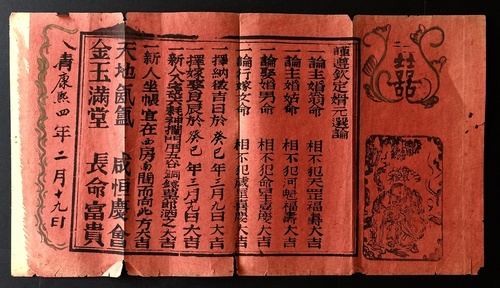 囍
謹遵欽定婚元選論
一論主婚翁命 相不犯天罡福壽大吉
一論主婚姑命 相不犯河魁福壽大吉
一論娶婚男命 相不犯命星喜慶大吉
一論行嫁女命 相不犯歲星喜慶大吉
一擇納徵吉日良於癸巳年三月九日大吉
一擇嫁娶日辰於癸巳年三月九日大吉
一新人入宅 耗神攔門用五谷銅錢草節洒之大吉
一新人坐帳宜在西房南間而向北方大吉
天地氤氳 咸恒慶會
金玉滿堂 長命富貴
清康熙四年二月十九日